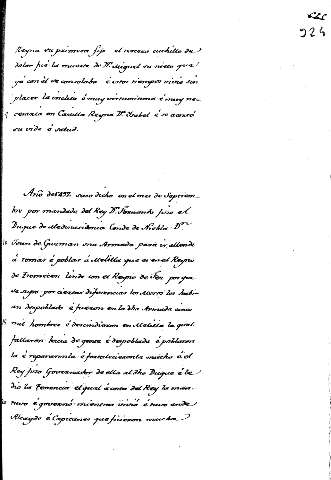 924
Reyna su primera fija el tercero cuchillo de
dolor fué la muerte de Dn Miguel su nieto que
ya con el se consolaba é estos tiempos vivió sin
placer la inclita é muy virtuosisima é muy ne
cesaria en Castilla Reyna Da Ysabel é se acortó
su vida é salud.
Año de 1497 suso dicho en el mes de Septiem
bre por mandado del Rey Dn Fernando fizo el
Duque de Medinasidonia Conde de Niebla Dn
Juan de Guzman una Armada para ir allende
á tomar é poblar á Melilla que es en el Reyno
de Tremecen linde con el Reyno de Fez porque
se supo por ciertas diferencias los Moros la habi
an despoblado é fueron en la dha Armada cinco
mil hombres é descendieron en Melilla la qual
fallaron vacia de gente é despoblada é poblaron
la é repararonla é fortalecieronla mucho é el
Rey fizo Governador de ella al dho Duque é le
dió la Tenencia el qual á costa del Rey la man
tuvo é governó mientras vivió é tuvo ende
Alcayde é Capitanes que ficieron mucha